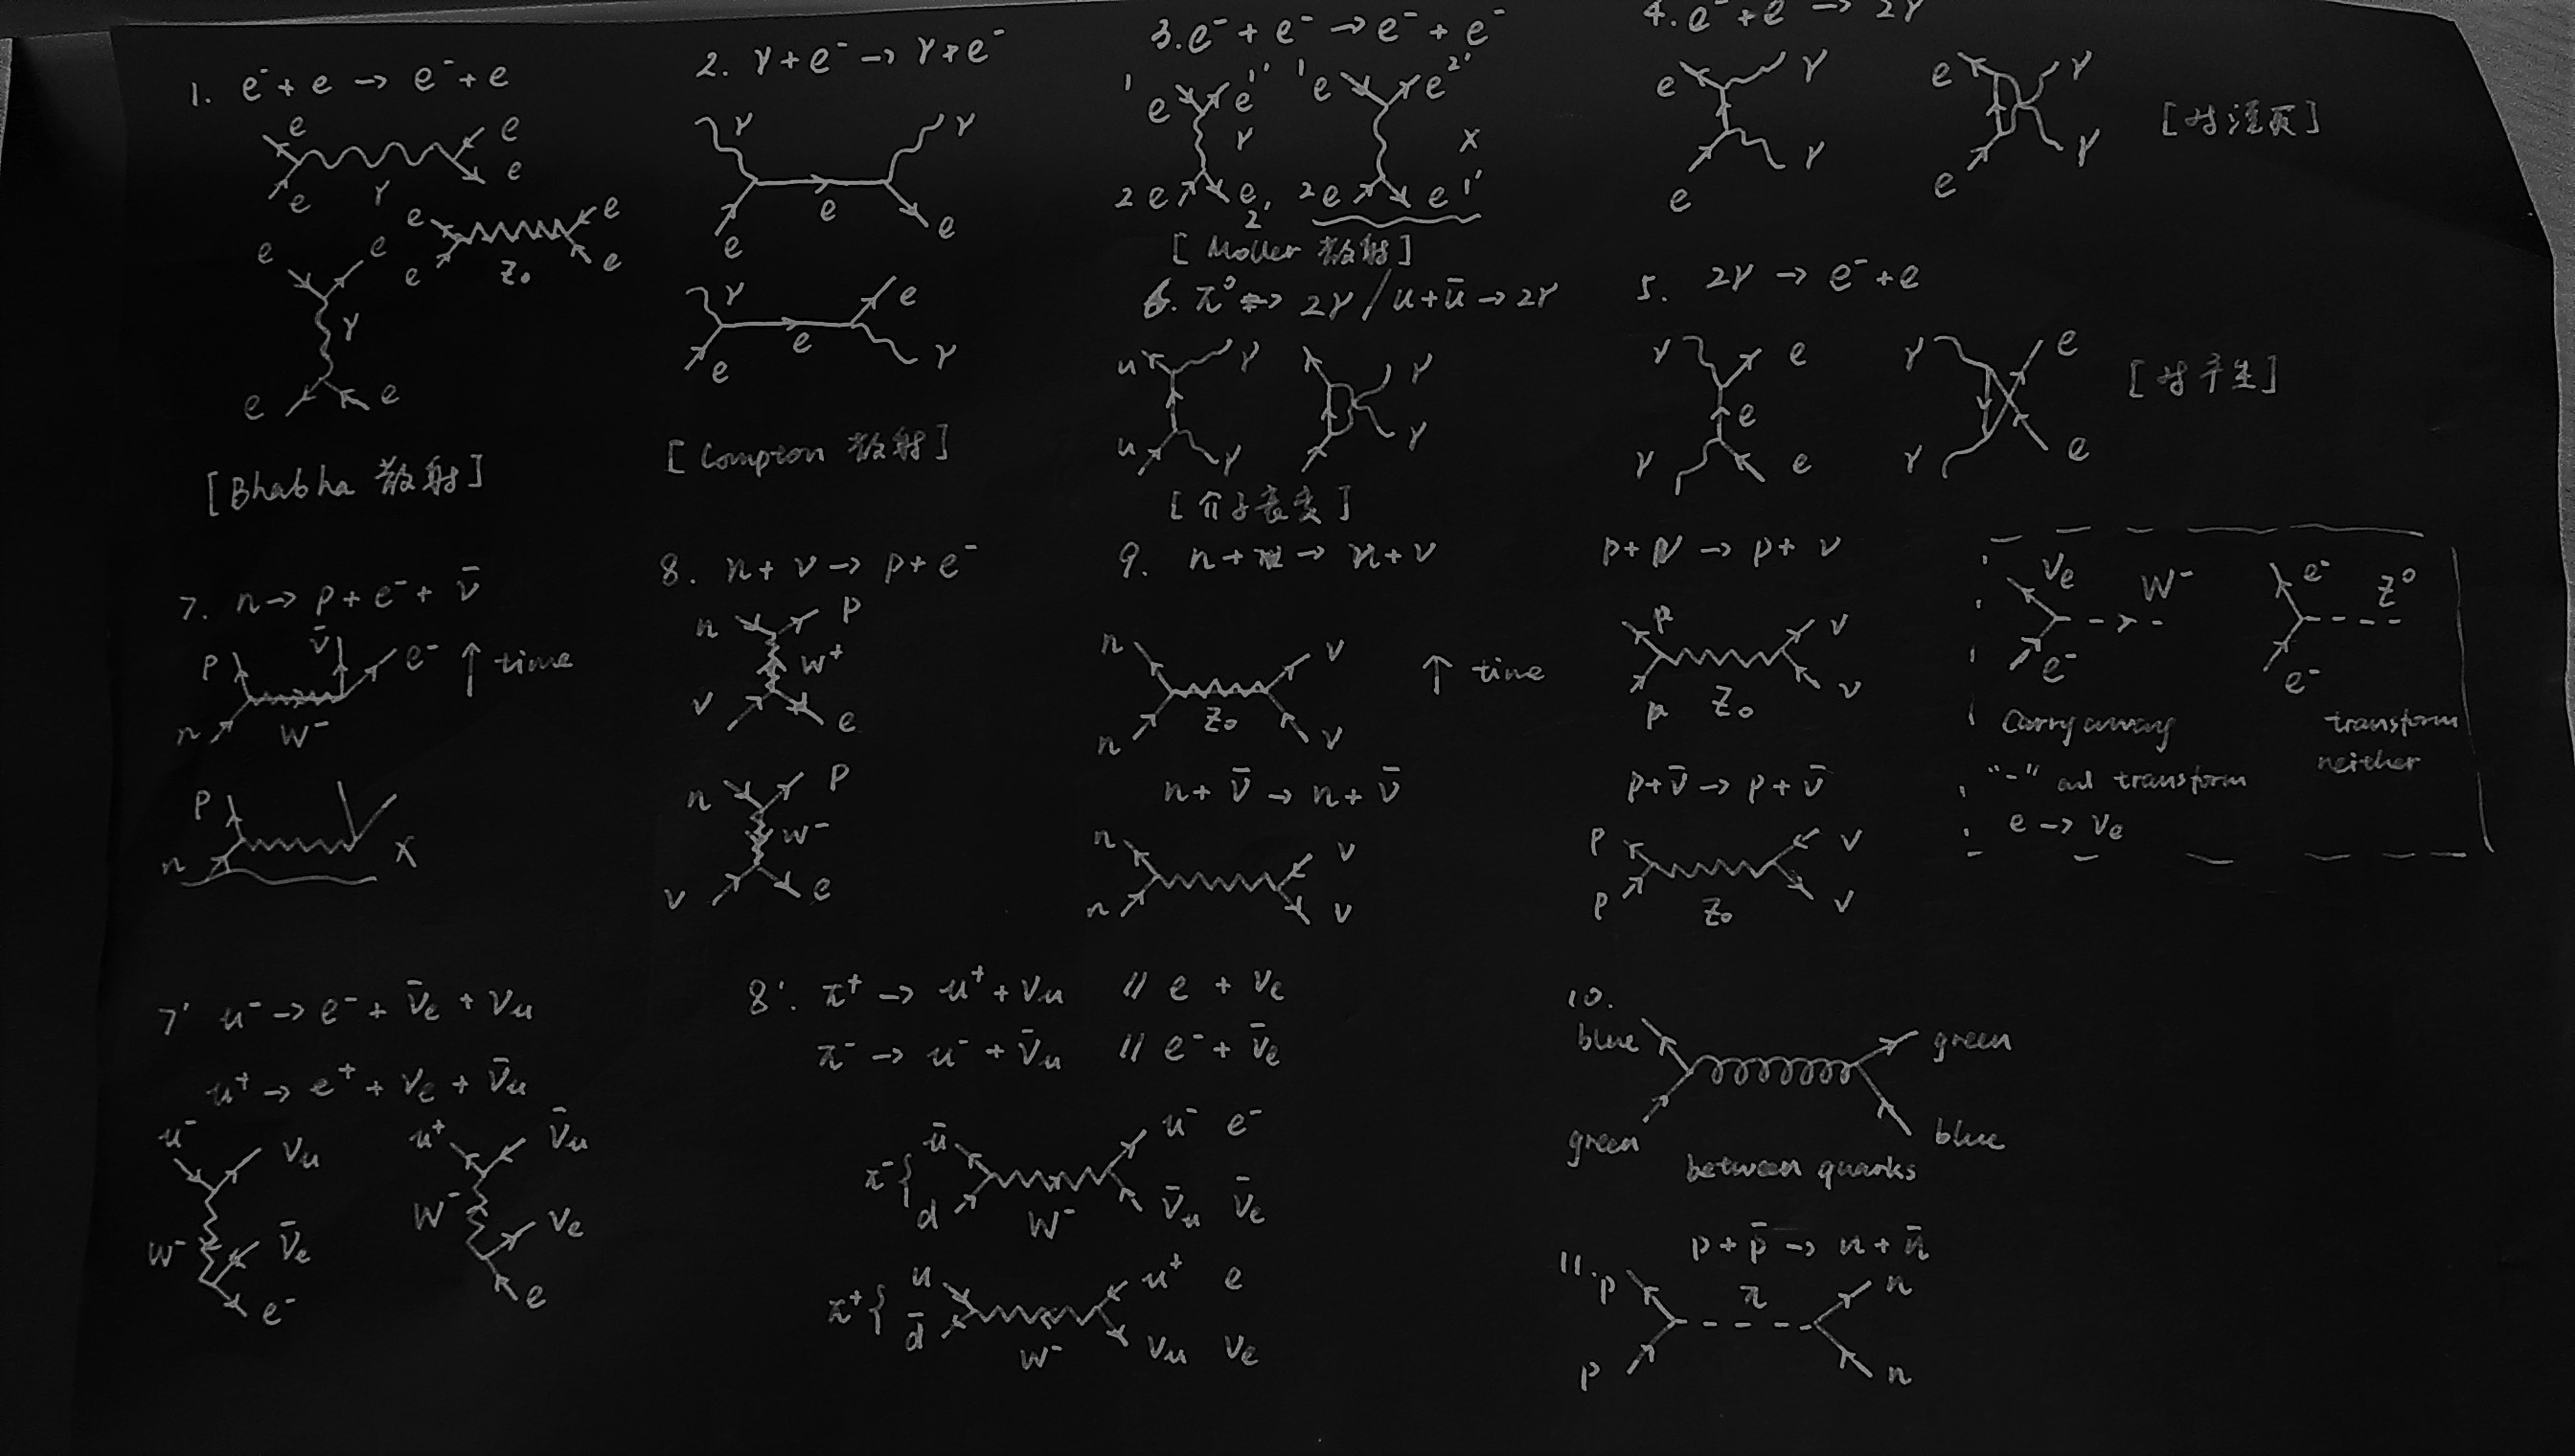 1. e⁻ + e → e⁻ + e
e
e
γ
e
e
e
e
Z₀
e
e
e
e
γ
e
e
[Bhabha 散射]
2. γ + e⁻ → γ + e⁻
γ
γ
e
e
e
γ
e
e
e
γ
[Compton 散射]
3. e⁻ + e⁻ → e⁻ + e⁻
1 e
e 1'
γ
2 e
e 2'
1 e
e 2'
x
2 e
e 1'
[Moller 散射]
4. e⁻ + e → 2γ
e
γ
γ
e
e
γ
γ
e
[对湮灭]
5. 2γ → e⁻ + e
γ
e
e
γ
e
γ
e
γ
e
[对产生]
6. π⁰ → 2γ / u + ū → 2γ
u
γ
u
γ
γ
γ
[介子衰变]
7. n → p + e⁻ + ν̄
p
ν̄
e⁻
↑ time
n
W⁻
p
n
x
8. n + ν → p + e⁻
n
p
W⁺
ν
e
n
p
W⁻
ν
e
9. n + → n + ν
n
ν
↑ time
Z₀
n
ν
n + ν̄ → n + ν̄
n
ν
n
ν
p + ν → p + ν
p
ν
p
Z₀
ν
p + ν̄ → p + ν̄
p
ν
p
Z₀
ν
νe
W⁻
e⁻
Carry away
"-" and transform
e → νe
e⁻
Z⁰
e⁻
transform
neither
7' u⁻ → e⁻ + ν̄e + νu
u⁺ → e⁺ + νe + ν̄u
u⁻
νu
W⁻
ν̄e
e⁻
u⁺
ν̄u
W⁻
νe
e
8'. π⁺ → u⁺ + νu // e + νe
π⁻ → u⁻ + ν̄u // e⁻ + ν̄e
π⁻ {
ū
d
W⁻
u⁻ e⁻
ν̄u ν̄e
π⁺ {
u
d̄
W⁻
u⁺ e
νu νe
10.
blue
green
green
blue
between quarks
11.
p + p̄ → n + n̄
p
π
n
p
n